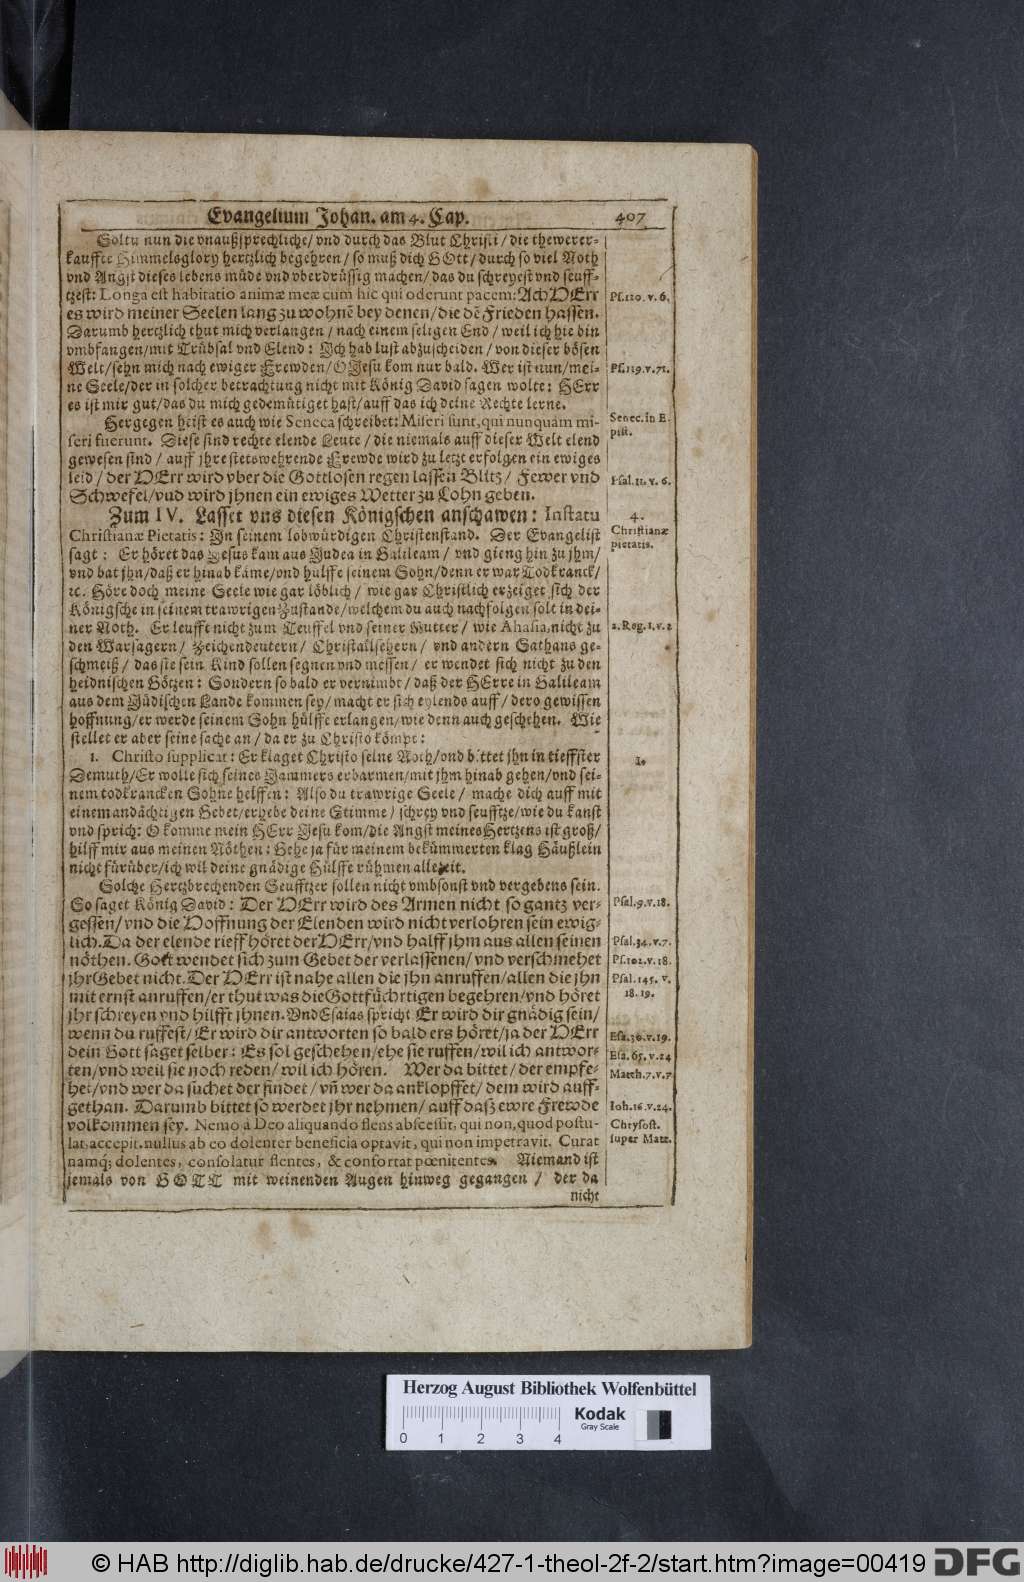 Evangelium Johan. am 4. Cap. 407
Soltu nun die vnaußsprechliche/ vnd durch das Blut Christi/ die thewerer-
kauffte Himmelsglory hertzlich begehren/ so muß dich GOtt/ durch so viel Noth
vnd Angst dieses lebens müde vnd vberdrüssig machen/ das du schreyest vnd seuff-
tzest: Longa est habitatio animæ meæ cum hic qui oderunt pacem: Ach HErr
es wird meiner Seelen lang zu wohnē bey denen/ die dē Frieden hassen.
Ps. 120. v. 6.
Darumb hertzlich thut mich verlangen/ nach einem seligen End/ weil ich hie bin
vmbfangen/ mit Trübsal vnd Elend: Ich hab lust abzuscheiden/ von dieser bösen
Welt/ sehn mich nach ewiger Frewden/ O Jesu kom nur bald. Wer ist nun/ mei-
ne Seele/ der in solcher betrachtung nicht mit König David sagen wolte: HErr
Ps. 119. v. 71.
es ist mir gut/ das du mich gedemütiget hast/ auff das ich deine Rechte lerne.
Hergegen heist es auch wie Seneca schreibet: Miseri sunt, qui nunquam mi-
Senec. in E-
seri fuerunt. Diese sind rechte elende Leute/ die niemals auff dieser Welt elend
pist.
gewesen sind/ auff jhre stetswehrende Frewde wird zu letzt erfolgen ein ewiges
leid/ der HErr wird vber die Gottlosen regen lassen Blitz/ Fewer vnd
Psal. 11. v. 6.
Schwefel/ vnd wird jhnen ein ewiges Wetter zu Lohn geben.
Zum IV. Lasset vns diesen Königschen anschawen: Instatu
4.
Christianæ Pietatis: In seinem lobwürdigen Christenstand. Der Evangelist
Christianæ
pietatis.
sagt: Er höret das Jesus kam aus Judea in Galileam/ vnd gieng hin zu jhm/
vnd bat jhn/ daß er hinab käme/ vnd hülffe seinem Sohn/ denn er war Todkranck/
ꝛc. Höre doch meine Seele wie gar löblich/ wie gar Christlich erzeiget sich der
Königsche in seinem trawrigen Zustande/ welchem du auch nachfolgen solt in dei-
ner Noth. Er leufft nicht zum Teuffel vnd seiner Mutter/ wie Ahasia, nicht zu
2. Reg. 1. v. 2
den Warsagern/ Zeichendeutern/ Christallsehern/ vnd andern Sathans ge-
schmeiß/ das sie sein Kind sollen segnen vnd messen/ er wendet sich nicht zu den
heidnischen Götzen: Sondern so bald er vernimbt/ daß der HErre in Galileam
aus dem Jüdischen Lande kommen sey/ macht er sich eylends auff/ dero gewissen
hoffnung/ er werde seinem Sohn hülffe erlangen/ wie denn auch geschehen. Wie
stellet er aber seine sache an/ da er zu Christo kömpt:
1. Christo supplicat: Er klaget Christo seine Noth/ vnd bittet jhn in tieffster
1.
Demuth/ Er wolle sich seines Jammers erbarmen/ mit jhm hinab gehen/ vnd sei-
nem todkrancken Sohne helffen: Also du trawrige Seele/ mache dich auff mit
einem andächtigen Gebet/ erhebe deine Stimme/ schrey vnd seufftze/ wie du kanst
vnd sprich: O komme mein HErr Jesu kom/ die Angst meines Hertzens ist groß/
hilff mir aus meinen Nöthen: Gehe ja für meinem bekümmerten klag Häußlein
nicht fürüber/ ich wil deine gnädige Hülffe rühmen allezeit.
Solche Hertzbrechenden Seufftzer sollen nicht vmbsonst vnd vergebens sein.
So saget König David: Der HErr wird des Armen nicht so gantz ver-
Psal. 9. v. 18.
gessen/ vnd die Hoffnung der Elenden wird nicht verlohren sein ewig-
lich. Da der elende rieff höret der HErr/ vnd halff jhm aus allen seinen
Psal. 34. v. 7.
nöthen. Gott wendet sich zum Gebet der verlassenen/ vnd verschmehet
Ps. 102. v. 18.
jhr Gebet nicht. Der HErr ist nahe allen die jhn anruffen/ allen die jhn
Psal. 145. v.
mit ernst anruffen/ er thut was die Gottfüchrtigen begehren/ vnd höret
18. 19.
jhr schreyen vnd hilfft jhnen. Vnd Esaias spricht Er wird dir gnädig sein/
wenn du ruffest/ Er wird dir antworten so bald ers höret/ ja der HErr
Esa. 30. v. 19.
dein Gott saget selber: Es sol geschehen/ ehe sie ruffen/ wil ich antwor-
Esa. 65. v. 24
ten/ vnd weil sie noch reden/ wil ich hören. Wer da bittet/ der empfe-
Matth. 7. v. 7
het/ vnd wer da suchet der findet/ vn̄ wer da anklopffet/ dem wird auff-
gethan. Darumb bittet so werdet jhr nehmen/ auff dasz ewre Frewde
Ioh. 16. v. 24.
volkommen sey. Nemo à Deo aliquando flens abscessit, qui non, quod postu-
Chrysost.
lat, accepit. nullus ab eo dolenter beneficia optavit, qui non impetravit. Curat
super Matt.
namq; dolentes, consolatur flentes, & confortat pœnitentes. Niemand ist
jemals von GOTT mit weinenden Augen hinweg gegangen/ der da
nicht
Herzog August Bibliothek Wolfenbüttel
Kodak
Gray Scale
0 1 2 3 4
© HAB http://diglib.hab.de/drucke/427-1-theol-2f-2/start.htm?image=00419 DFG